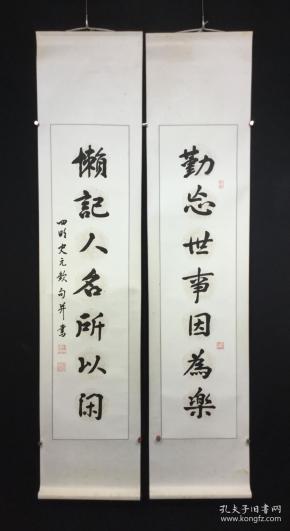 勤忘世事因為樂
懶記人名所以闲
四明史元欽句并書
孔夫子旧书网
www.kongfz.com